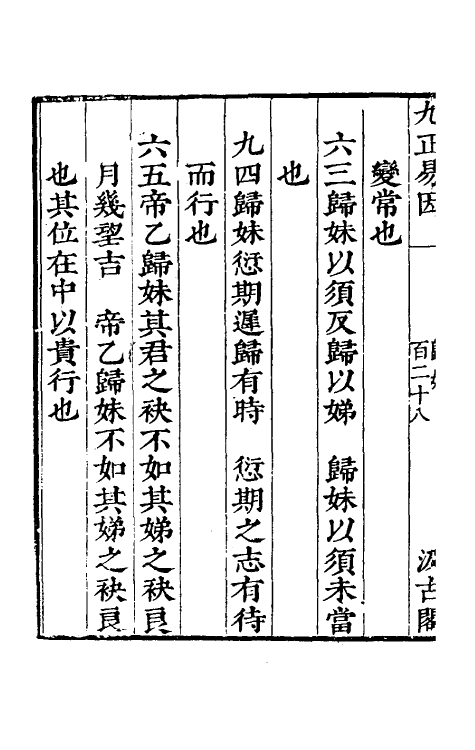 九正易因
百二十八
汲古閣
變常也
六三歸妹以須反歸以娣　歸妹以須未當
也
九四歸妹愆期遲歸有時　愆期之志有待
而行也
六五帝乙歸妹其君之袂不如其娣之袂良
月幾望吉　帝乙歸妹不如其娣之袂良
也其位在中以貴行也